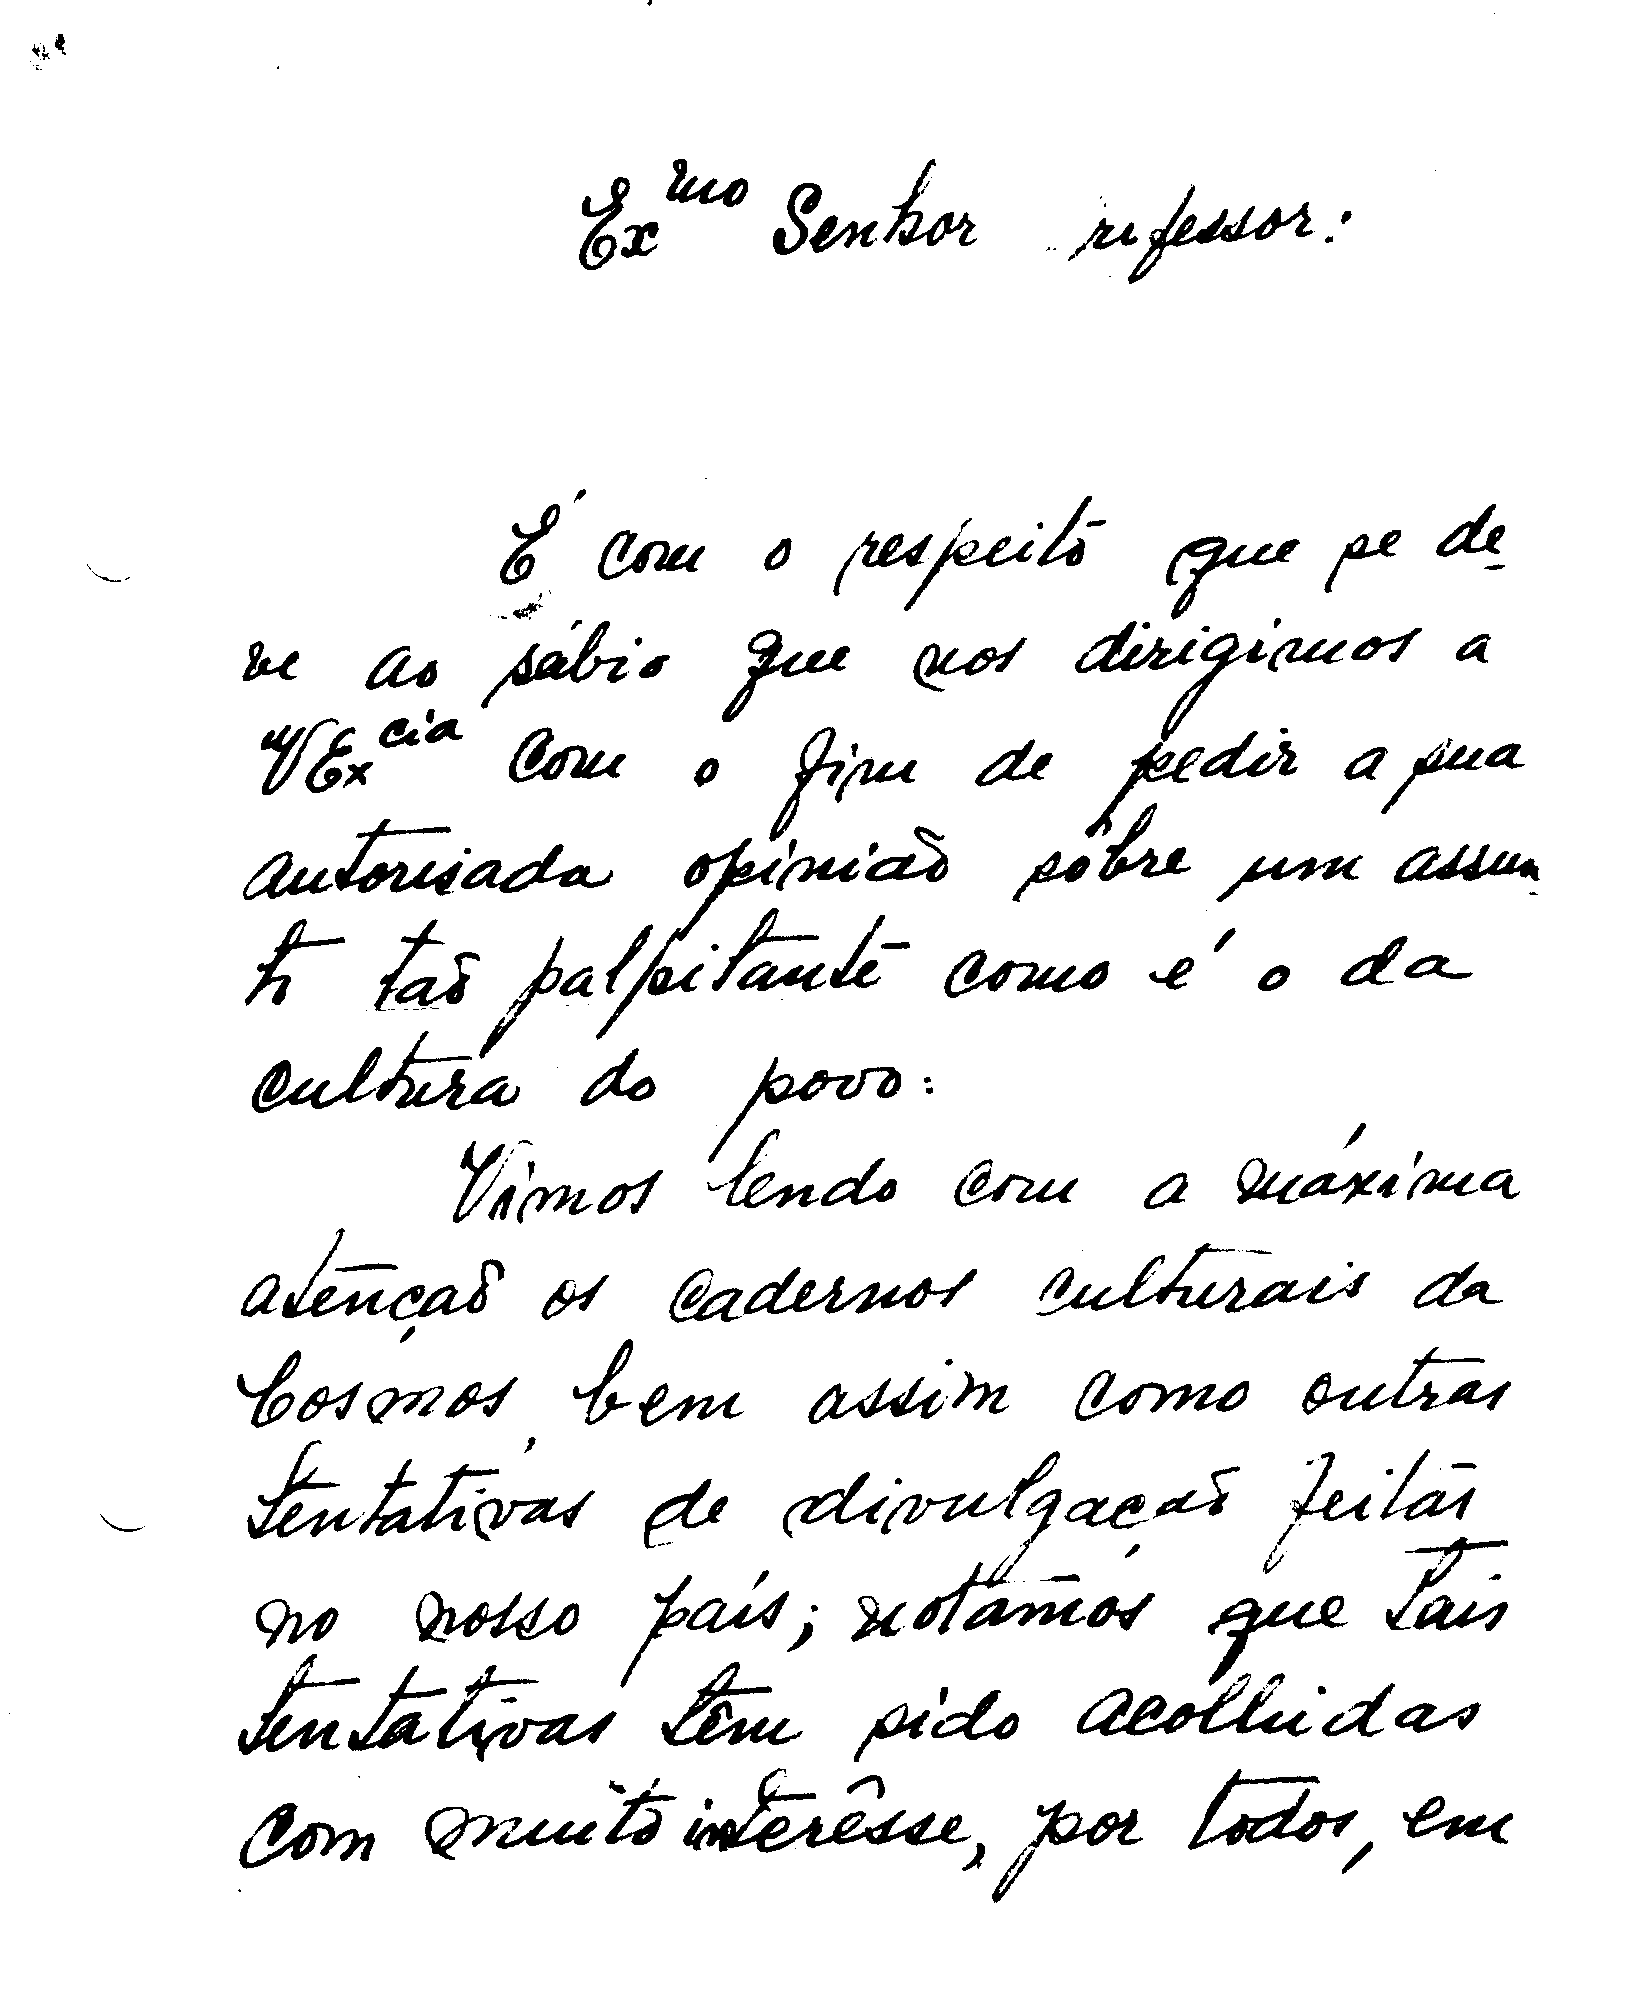 Exmo Senhor Professor:
É com o respeito que se de-
ve ao sábio que nos dirigimos a
VExcia com o fim de pedir a sua
autorisada opinião sôbre um assun-
to tão palpitante como é o da
cultura do povo:
Vimos lendo com a máxima
atenção os cadernos culturais da
Cosmos, bem assim como outras
tentativas de divulgação feitas
no nosso país; notámos que tais
tentativas têm sido acolhidas
com muito interêsse, por todos, em